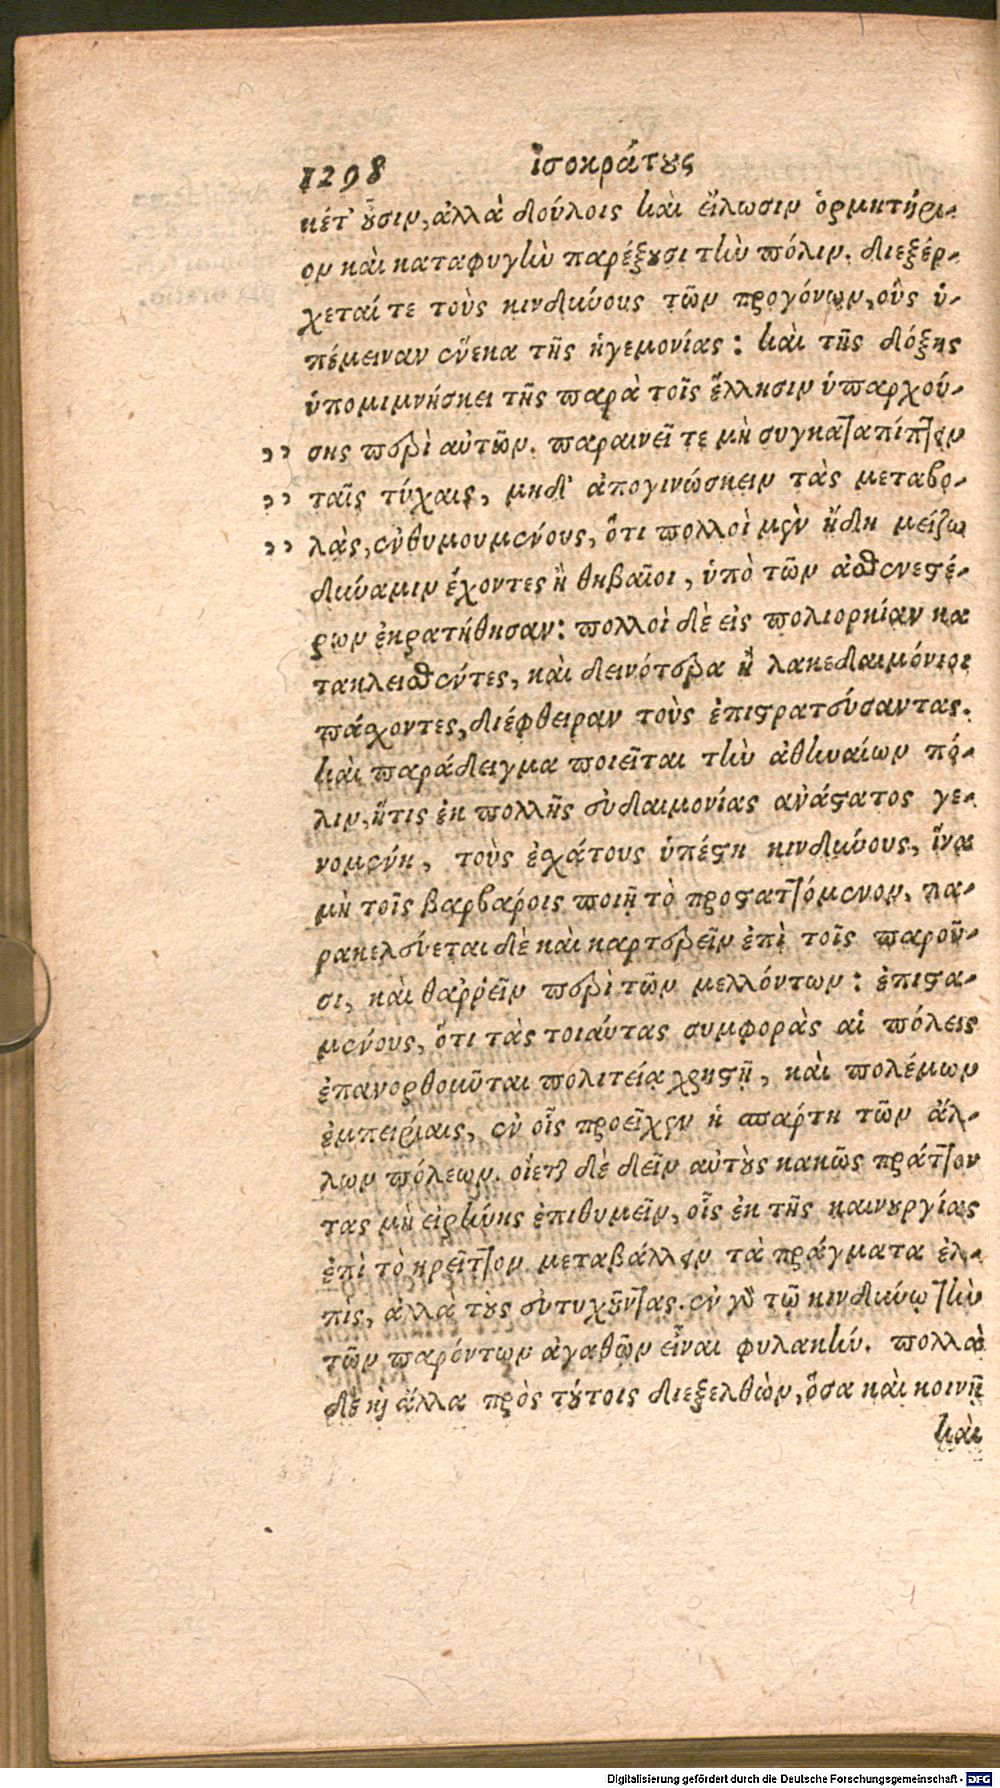 1298 ἰσοκράτους
κέτ' οὖσιν, ἀλλὰ δούλοις καὶ εἵλωσιν ὁρμητήρι-
ον καὶ καταφυγὴν παρέξουσι τὴν πόλιν. διεξέρ-
χεταί τε τοὺς κινδύνους τῶν προγόνων, οὓς ὑ-
πέμειναν ἕνεκα τῆς ἡγεμονίας: καὶ τῆς δόξης
ὑπομιμνήσκει τῆς παρὰ τοῖς ἕλλησιν ὑπαρχού-
›› σης περὶ αὐτῶν. παραινεῖ τε μὴ συγκαταπίπτειν
›› ταῖς τύχαις, μηδ' ἀπογινώσκειν τὰς μεταβο-
›› λὰς, ἐνθυμουμένους, ὅτι πολλοὶ μὲν ἤδη μείζω
δύναμιν ἔχοντες ἢ θηβαῖοι, ὑπὸ τῶν ἀσθενεστέ-
ρων ἐκρατήθησαν: πολλοὶ δὲ εἰς πολιορκίαν κα
τακλεισθέντες, καὶ δεινότερα ἢ λακεδαιμόνιοι
πάσχοντες, διέφθειραν τοὺς ἐπιστρατεύσαντας.
καὶ παράδειγμα ποιεῖται τὴν ἀθηναίων πό-
λιν, ἥτις ἐκ πολλῆς εὐδαιμονίας ἀνάστατος γε-
νομένη, τοὺς ἐσχάτους ὑπέστη κινδύνους, ἵνα
μὴ τοῖς βαρβάροις ποιῇ τὸ προσταττόμενον. πα-
ρακελεύεται δὲ καὶ καρτερεῖν ἐπὶ τοῖς παροῦ-
σι, καὶ θαῤῥεῖν περὶ τῶν μελλόντων: ἐπιστα-
μένους, ὅτι τὰς τοιαύτας συμφορὰς αἱ πόλεις
ἐπανορθοῦνται πολιτείᾳ χρηστῇ, καὶ πολέμων
ἐμπειρίαις, ἐν οἷς προεῖχεν ἡ σπάρτη τῶν ἄλ-
λων πόλεων. οἴεται δὲ δεῖν αὐτοὺς κακῶς πράττον
τας μὴ εἰρήνης ἐπιθυμεῖν, οἷς ἐκ τῆς καινουργίας
ἐπὶ τὸ κρεῖττον μεταβάλλειν τὰ πράγματα ἐλ-
πὶς, ἀλλὰ τοὺς εὐτυχοῦντας. ἐν γὰρ τῷ κινδύνῳ τὴν
τῶν παρόντων ἀγαθῶν εἶναι φυλακήν. πολλὰ
δὲ καὶ ἄλλα πρὸς τούτοις διεξελθὼν, ὅσα καὶ κοινῇ
καὶ
Digitalisierung gefördert durch die Deutsche Forschungsgemeinschaft - DFG